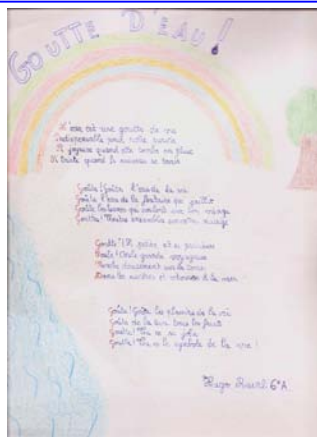 GOUTTE D'EAU !
L'eau est une goutte de vie
Indispensable pour notre survie
Si joyeuse quand elle tombe en pluie
Si triste quand le ruisseau se tarit
Goûte ! Goûte l'eau de la vie
Goûte l'eau de la fontaine qui jaillit
Goûte les larmes qui coulent sur ton visage
Goutte !
Goutte ! Si petite et si précieuse
Goutte ! Cette grande voyageuse
Tombe doucement sur la terre
Dans les rivières et rejoins la mer
Goûte ! Goûte les plaisirs de la vie
Goûte de la terre tous les fruits
Goutte ! Tu es si jolie
Goutte ! Tu es le symbole de la vie !
Hugo 6°A